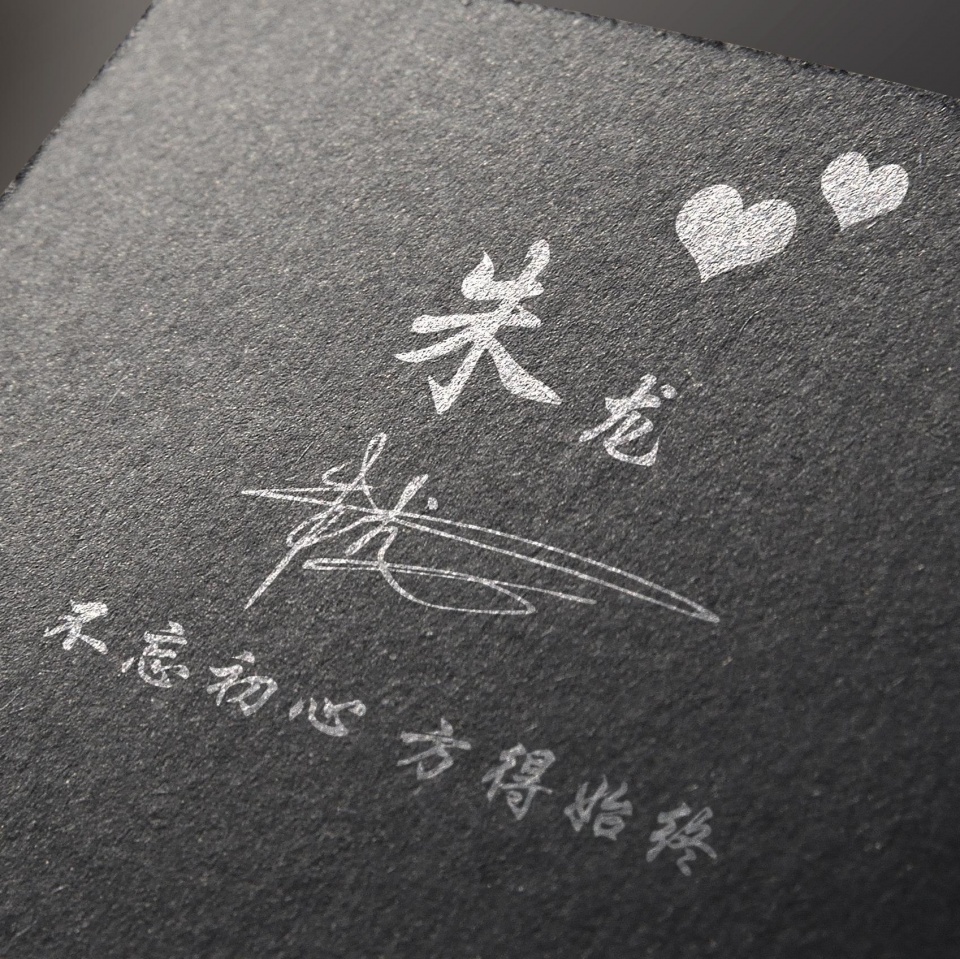 朱龙
不忘初心 方得始终